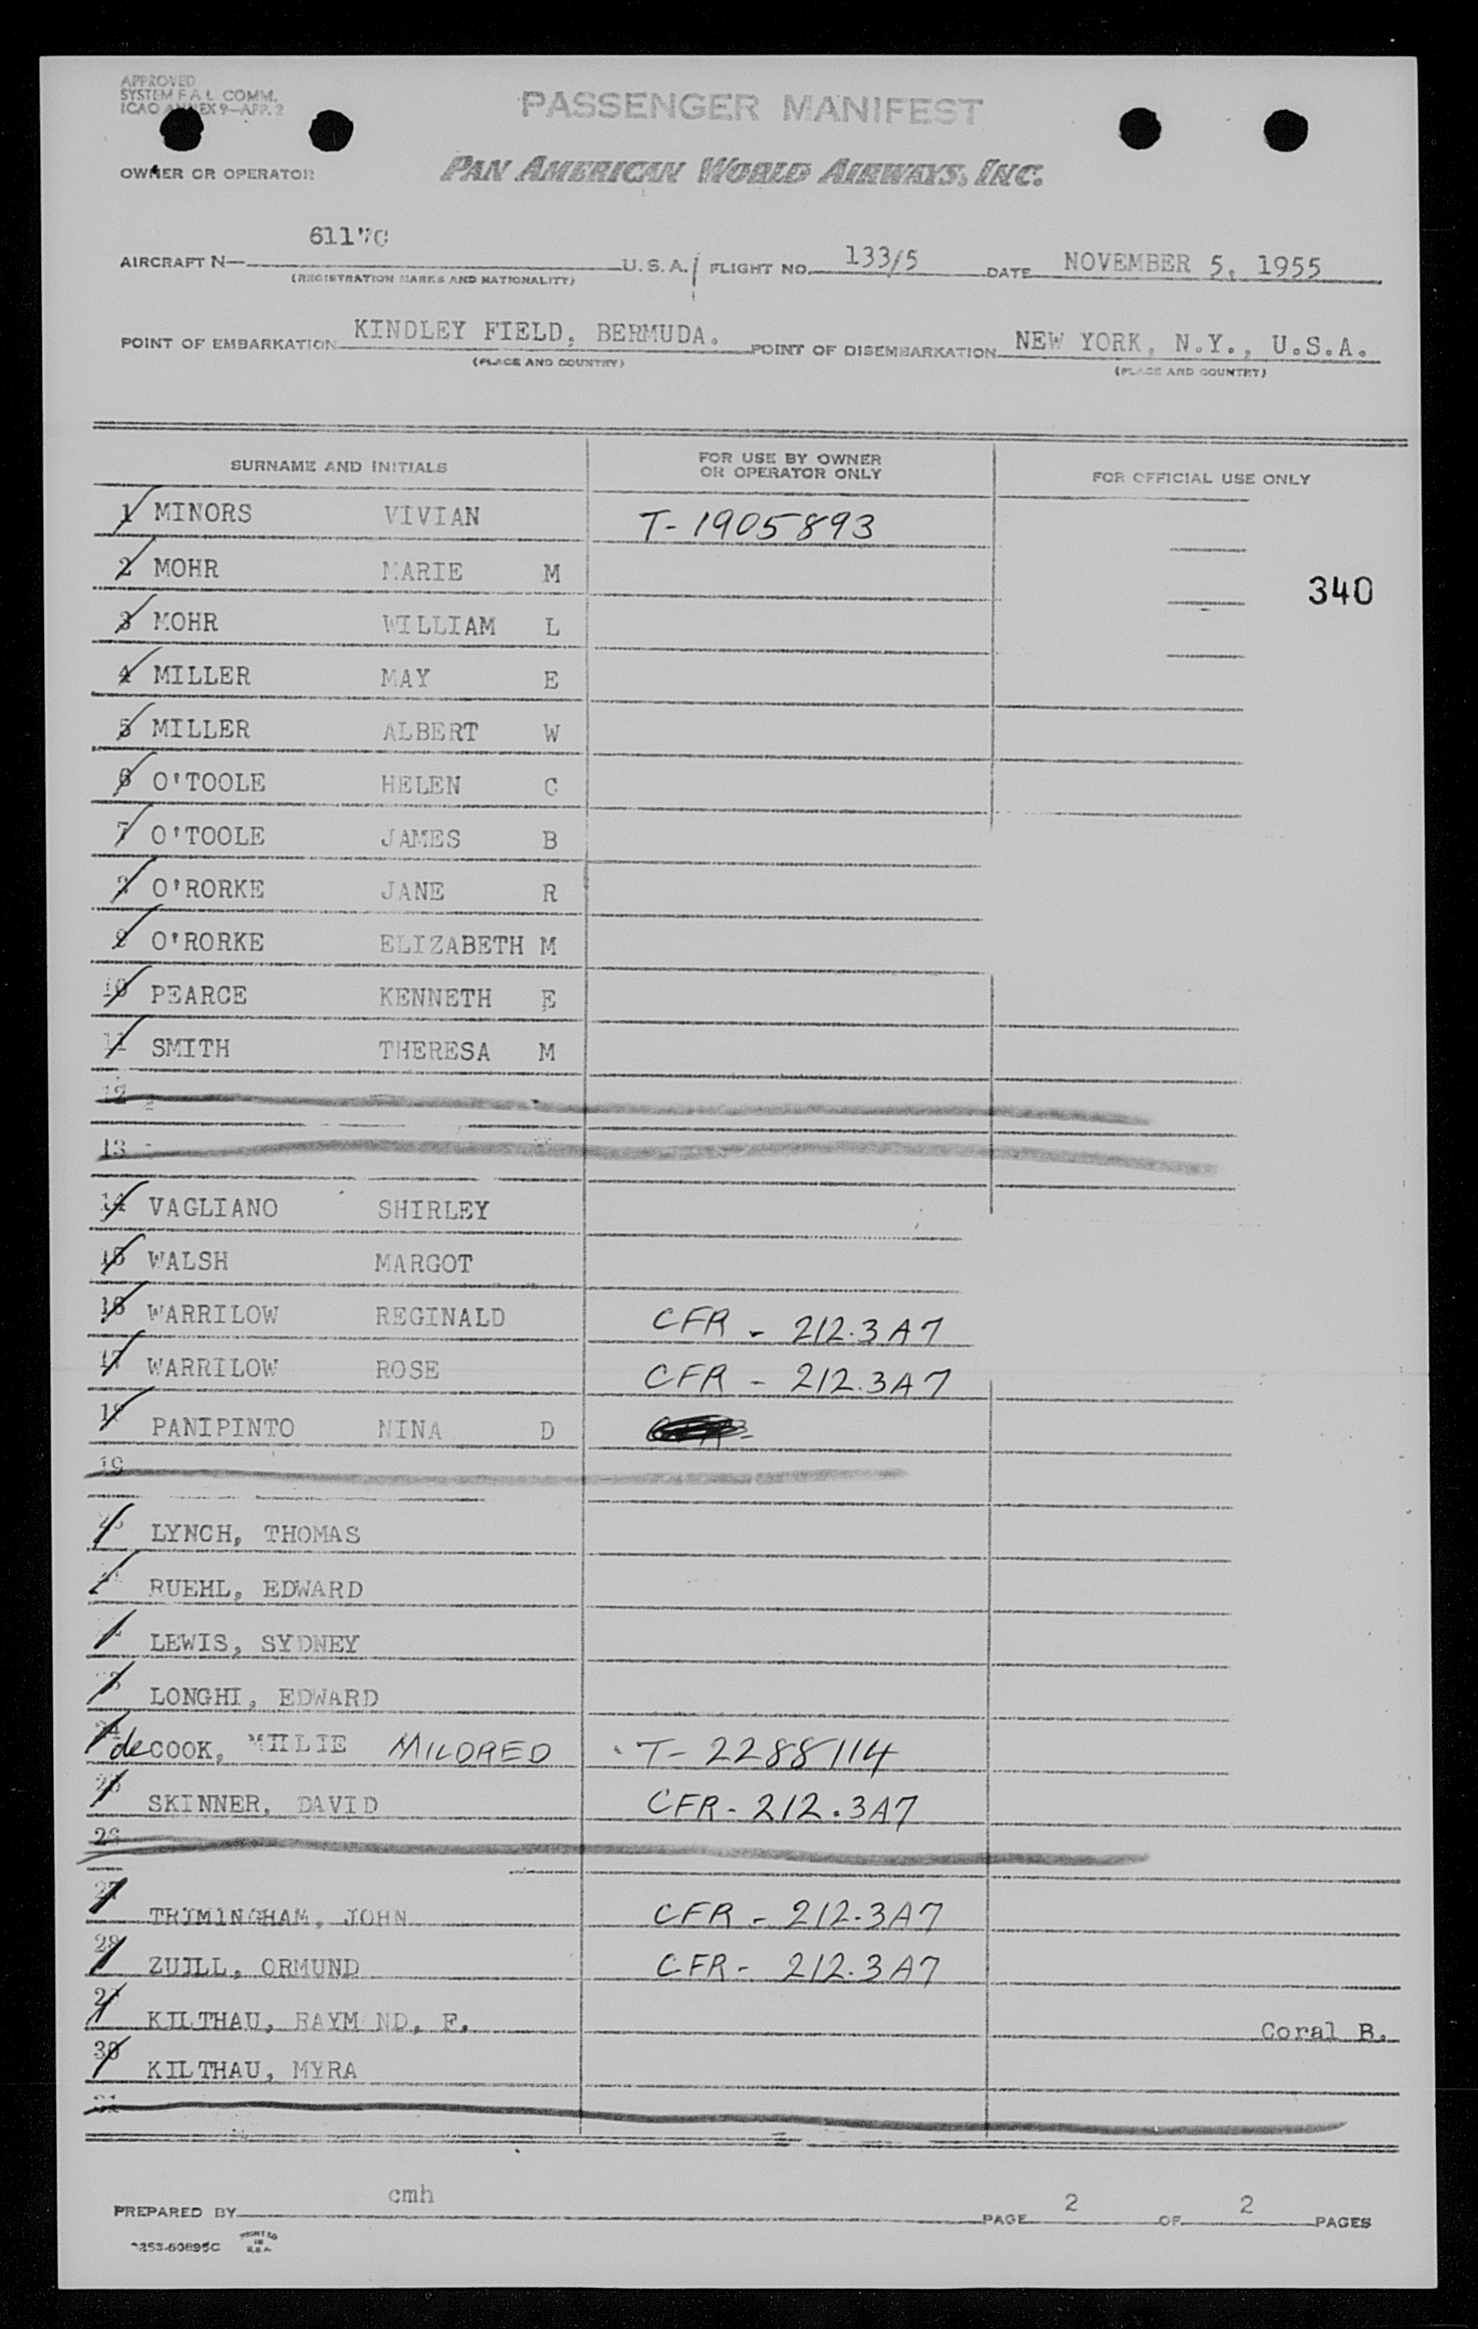 APPROVED
SYSTEM F.A.L. COMM.
ICAO ANNEX 9—APP. 2
PASSENGER MANIFEST
OWNER OR OPERATOR PAN AMERICAN WORLD AIRWAYS, INC.
AIRCRAFT N— U.S.A. FLIGHT NO. 133/5 DATE NOVEMBER 5, 1955
(REGISTRATION MARKS AND NATIONALITY)
POINT OF EMBARKATION KINDLEY FIELD, BERMUDA. POINT OF DISEMBARKATION NEW YORK, N.Y., U.S.A.
(PLACE AND COUNTRY) (PLACE AND COUNTRY)
SURNAME AND INITIALS FOR USE BY OWNER OR OPERATOR ONLY FOR OFFICIAL USE ONLY
1 MINORS VIVIAN T-1905893
2 MOHR MARIE M 340
3 MOHR WILLIAM L
4 MILLER MAY E
5 MILLER ALBERT W
6 O'TOOLE HELEN C
7 O'TOOLE JAMES B
8 O'RORKE JANE R
9 O'RORKE ELIZABETH M
10 PEARCE KENNETH E
11 SMITH THERESA M
12
13
14 VAGLIANO SHIRLEY
15 WALSH MARGOT
16 WARRILOW REGINALD CFR - 212.3A7
17 WARRILOW ROSE CFR - 212.3A7
18 PANIPINTO NINA D
19
20 LYNCH, THOMAS
RUEHL, EDWARD
LEWIS, SYDNEY
23 LONGHI, EDWARD
24 de COOK, MILLIE MILDRED T-2288114
25 SKINNER, DAVID CFR-212.3A7
26
27 TRIMINGHAM, JOHN CFR - 212.3A7
28 ZUILL, ORMUND CFR - 212.3A7
29 KILTHAU, RAYMOND, F. Coral B.
30 KILTHAU, MYRA
31
PREPARED BY cmh PAGE 2 OF 2 PAGES
PRINTED
IN
U.S.A.